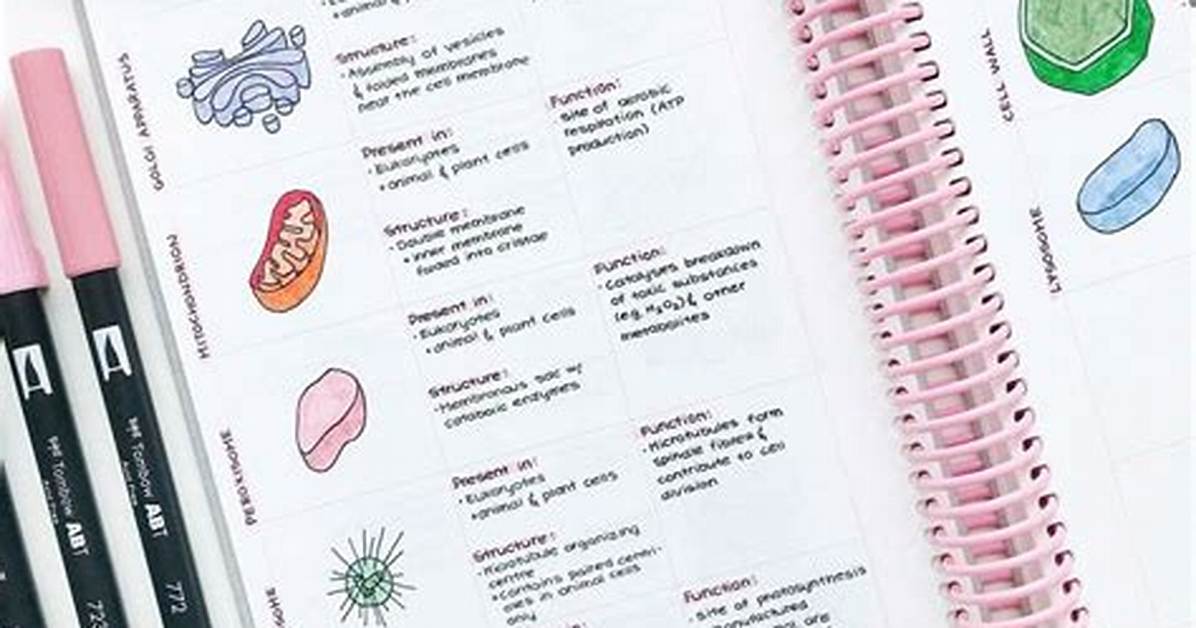 • animal &
Structure:
• Assembly of vesicles
& folded membranes
near the cell membrane
GOLGI APPARATUS
Function:
site of aerobic
respiration (ATP
production)
Present in:
• Eukaryotes
• animal & plant cells
Structure:
• Double membrane
• inner membrane
folded into cristae
MITOCHONDRION
Function:
• Catalyses breakdown
of toxic substances
(eg. H₂O₂) & other
metabolites
Present in:
• Eukaryotes
• animal & plant cells
Structure:
• Membranous sac w/
catabolic enzymes
PEROXISOME
Function:
• Microtubules form
spindle fibres &
contribute to cell
division
Present in:
• Eukaryotes
• animal & plant cells
Structure:
• Microtubule organizing
centre
• Contains paired centri-
oles in animal cells
only
Function:
• site of photosynthesis
CELL WALL
LYSOSOME
Tombow ABT
Tombow ABT
772